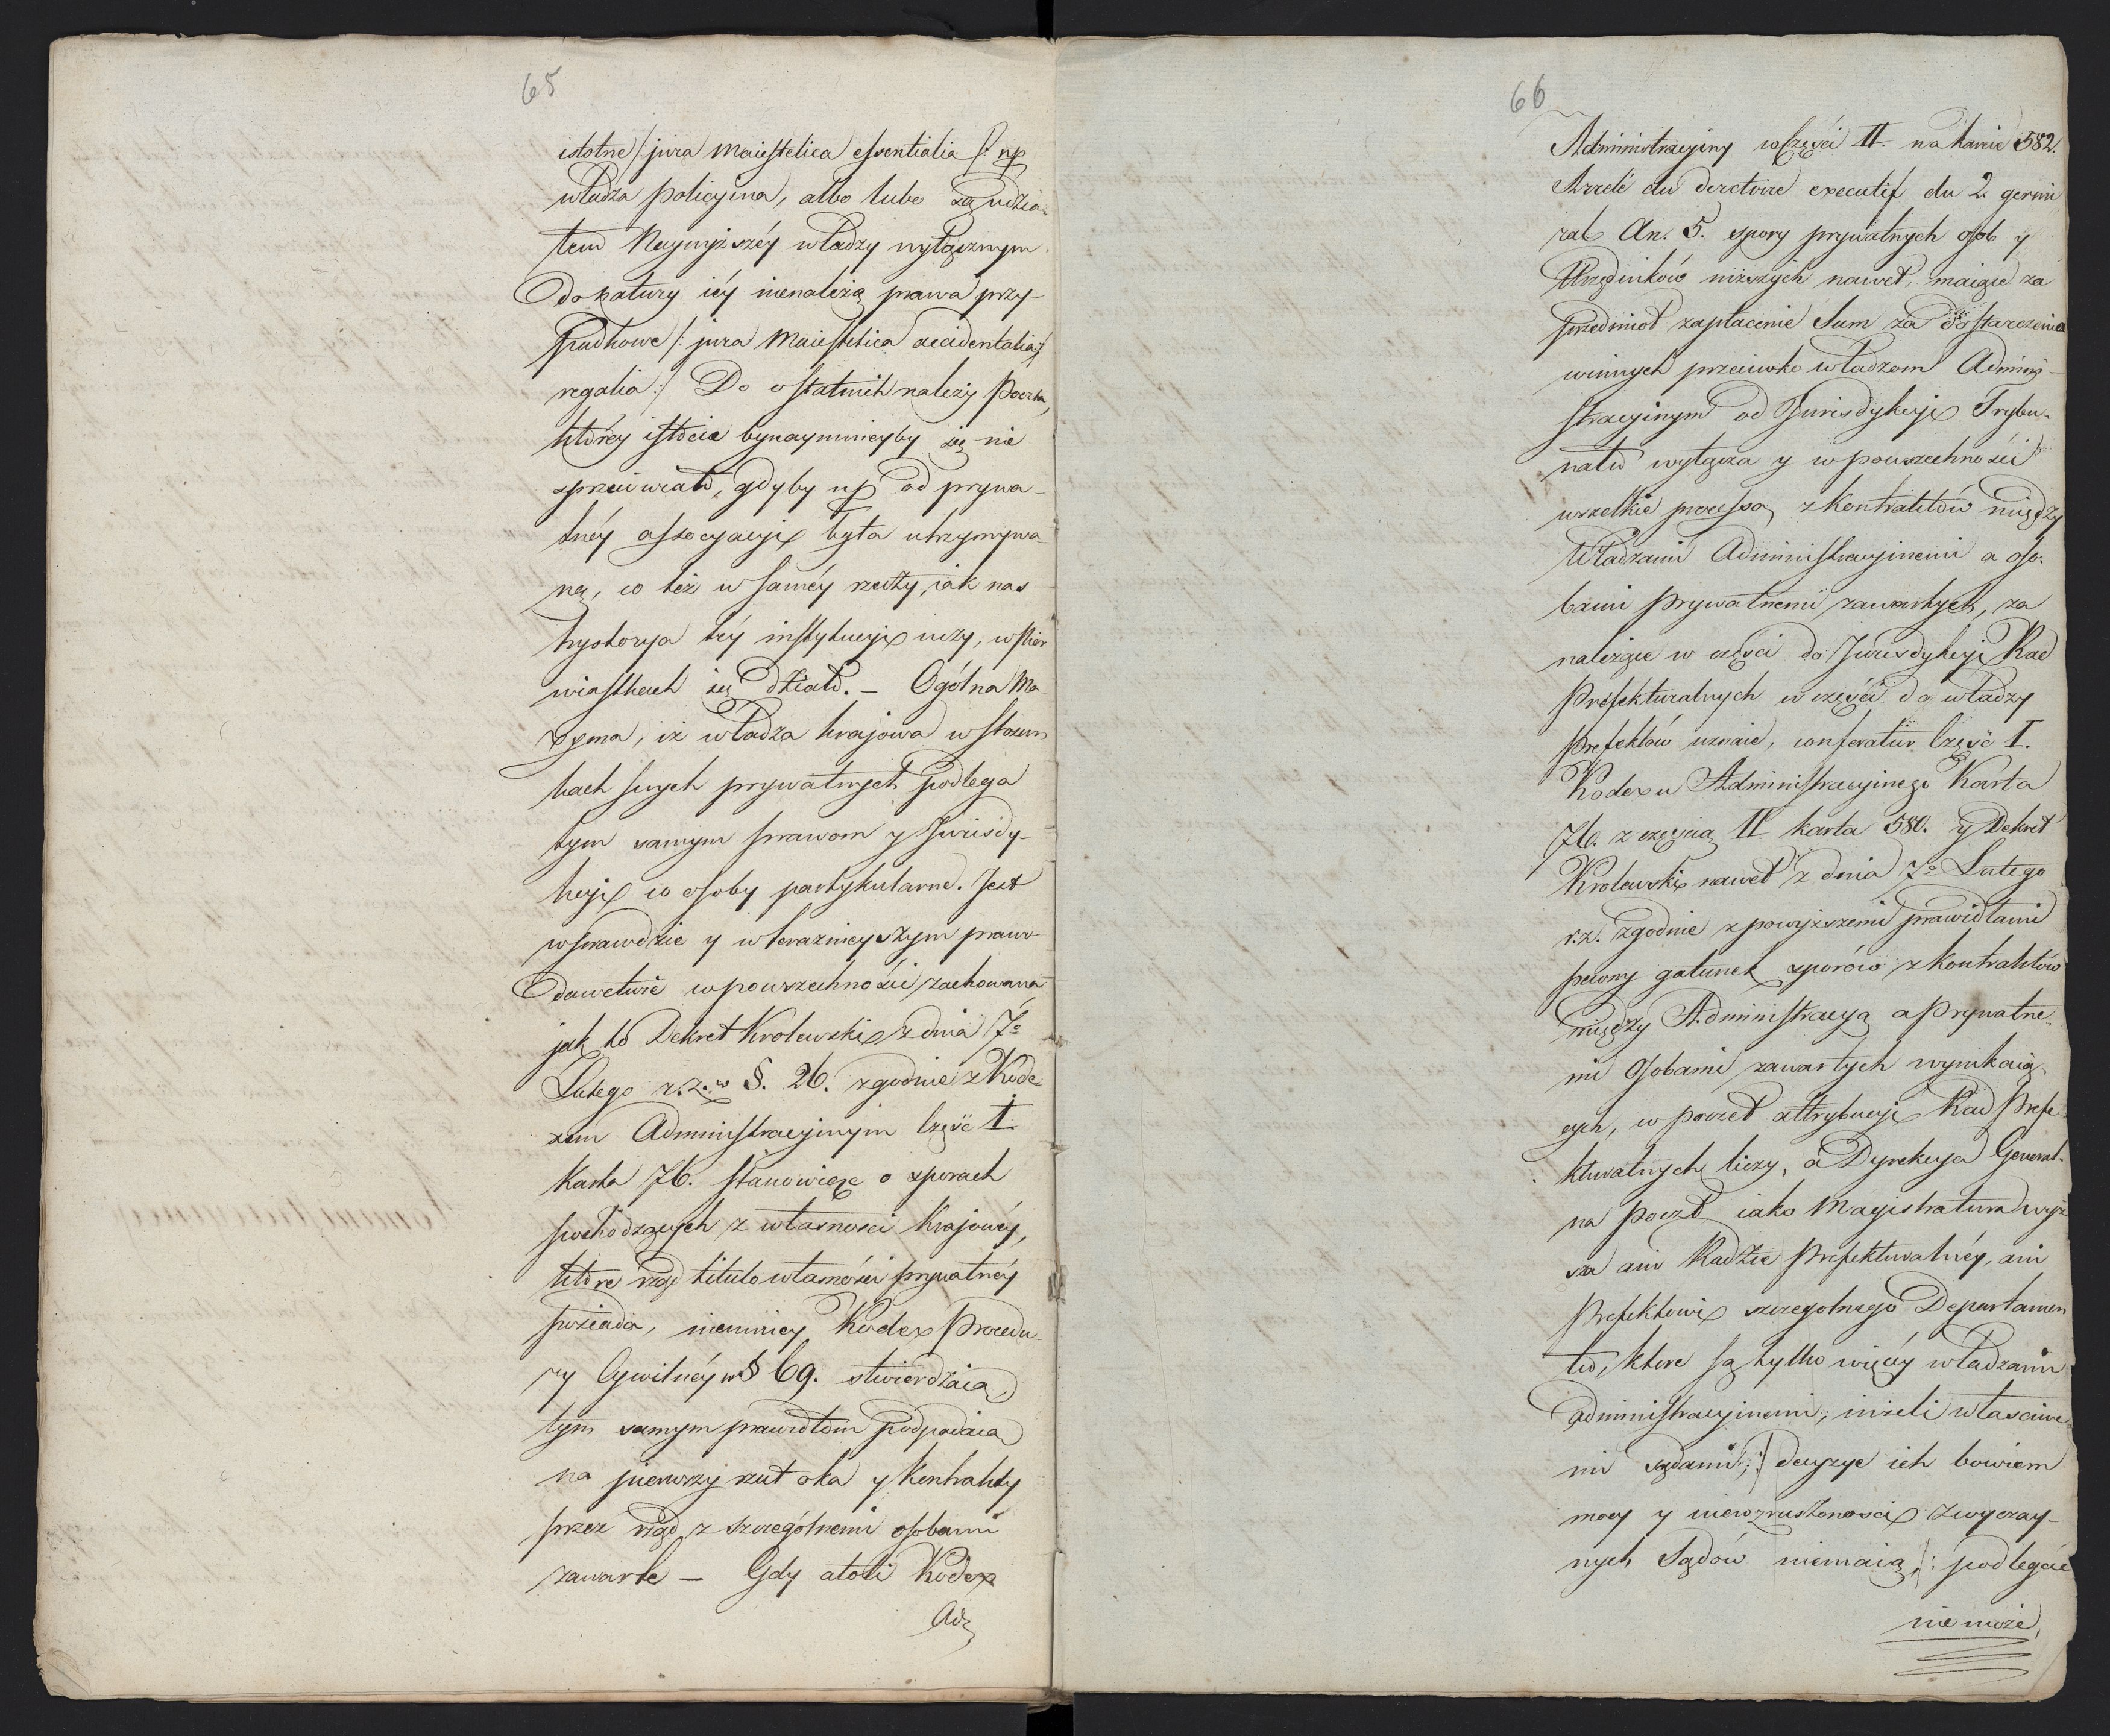 65
istotne /: jura Maiestetica essentialia /: np
władza policyina, albo lubo są udzia-
łem Naywyższéy władzy wyłącznym
do natury iéy nienależą prawa przy-
padkowe /: jura Maiestetica accidentalia,
regalia :/ Do ostatnich należy Poczta,
któréy istocie bynaymnieyby się nie
sprzeciwiało, gdyby np od prywa-
tnéy associacyi była utrzymywa-
na, co też w saméy rzeczy, iak nas
hystorya téy instytucyi uczy, w pier
wiastkach się działo. — Ogólna Ma-
xyma, iż władza krajowa w stosun
kach swych prywatnych podlega
tym samym prawom y Jurisdy-
kcyi co osoby partykularne. Jest
wprawdzie y w teraznieyszym prawo
dawctwie w powszechności zachowana
jak to Dekret Krolewski z dnia 7o
Lutego r. z. w §. 26. zgodnie z Kode-
xem Administracyinym Część I.
Karta 76. stanowiąc o sporach
pochodzących z własności Krajowéy,
które rząd titulo własności prywatnéy
posiada, niemniey Kodex Procedu-
ry Cywilnéy w § 69. stwierdzaią,
tym samym prawidłom podpadaią
na pierwszy rzut oka y Kontrakty
przez rząd z szczególnemi osobami
zawarte — Gdy atoli Kodex
Ad
66
Administracyiny w Części II. na karcie 582.
Arreté du derctoire executif du 2. germi
nal An. 5. spory prywatnych osob y
Urzędników niższych nawet, maiące za
przedmiot zapłacenie Sum za dostarczenie
winnych przeciwko władzom Admini-
stracyinym od Jurisdykcyi Trybu-
nałów wyłącza y w powszechności
wszelkie processa z Kontraktów między
Władzami Administracyinemi a oso-
bami prywatnemi zawartych, za
należące w części do Jurisdykcyi Rad
Prefekturalnych w części do władzy
Prefektów uznaie, conferatur Część I.
Kodexu Administracyinego Karta
76. z częścią II. karta 580. y Dekret
Krolewski nawet z dnia 7o Lutego
r. z. zgodnie z powyższemi prawidłami
pewny gatunek sporów z Kontraktów
między Administracyą a Prywatne-
mi Osobami zawartych wynikaią-
cych, w poczet attrybucyi Rad Prefe-
kturalnych liczy, a Dyrekcya General-
na Poczt iako Magistratura wyż
sza ani Radzie Prefekturalnéy, ani
Prefektowi szczegolnego Departamen
tu, ktore są tylko więcéy władzami
administracyinemi, niżeli właściwe
mi sądami, :/ decyzye ich bowiem
mocy y niewzruszoności zwyczay-
nych Sądów niemaią, /: podlegać
nie może,